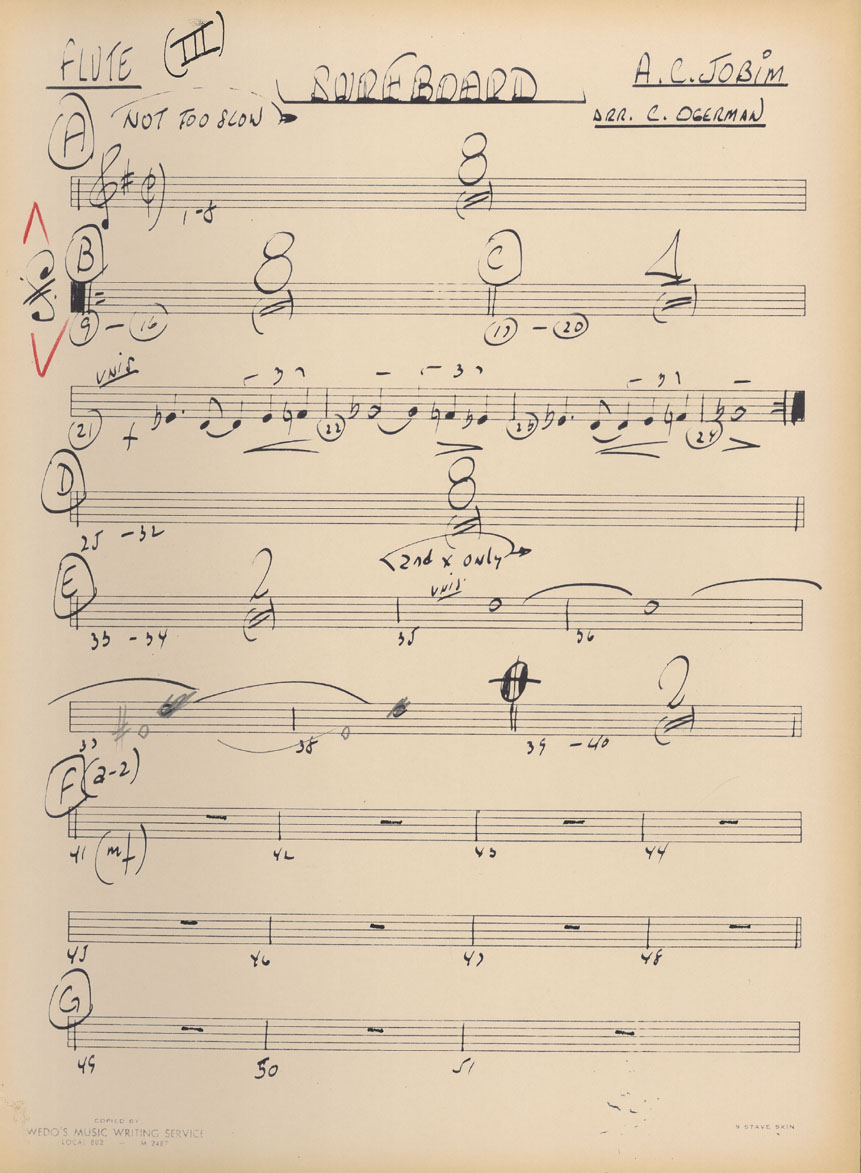 FLUTE (III)
SURFBOARD
A. C. JOBIM
ARR. C. OGERMAN
A
NOT TOO SLOW
8
1-8
B
8
C
4
9 - 16
17 - 20
UNIS
3 3 3
21 f 22 23 24
D
8
25 - 32
E
2
2nd x only
UNIS
33 - 34 35 36
2
37 38 39 - 40
F (a-2)
41 (mf) 42 43 44
45 46 47 48
G
49 50 51
COPIED BY
WEDO'S MUSIC WRITING SERVICE
LOCAL 802 - M 2487
9 STAVE SKIN